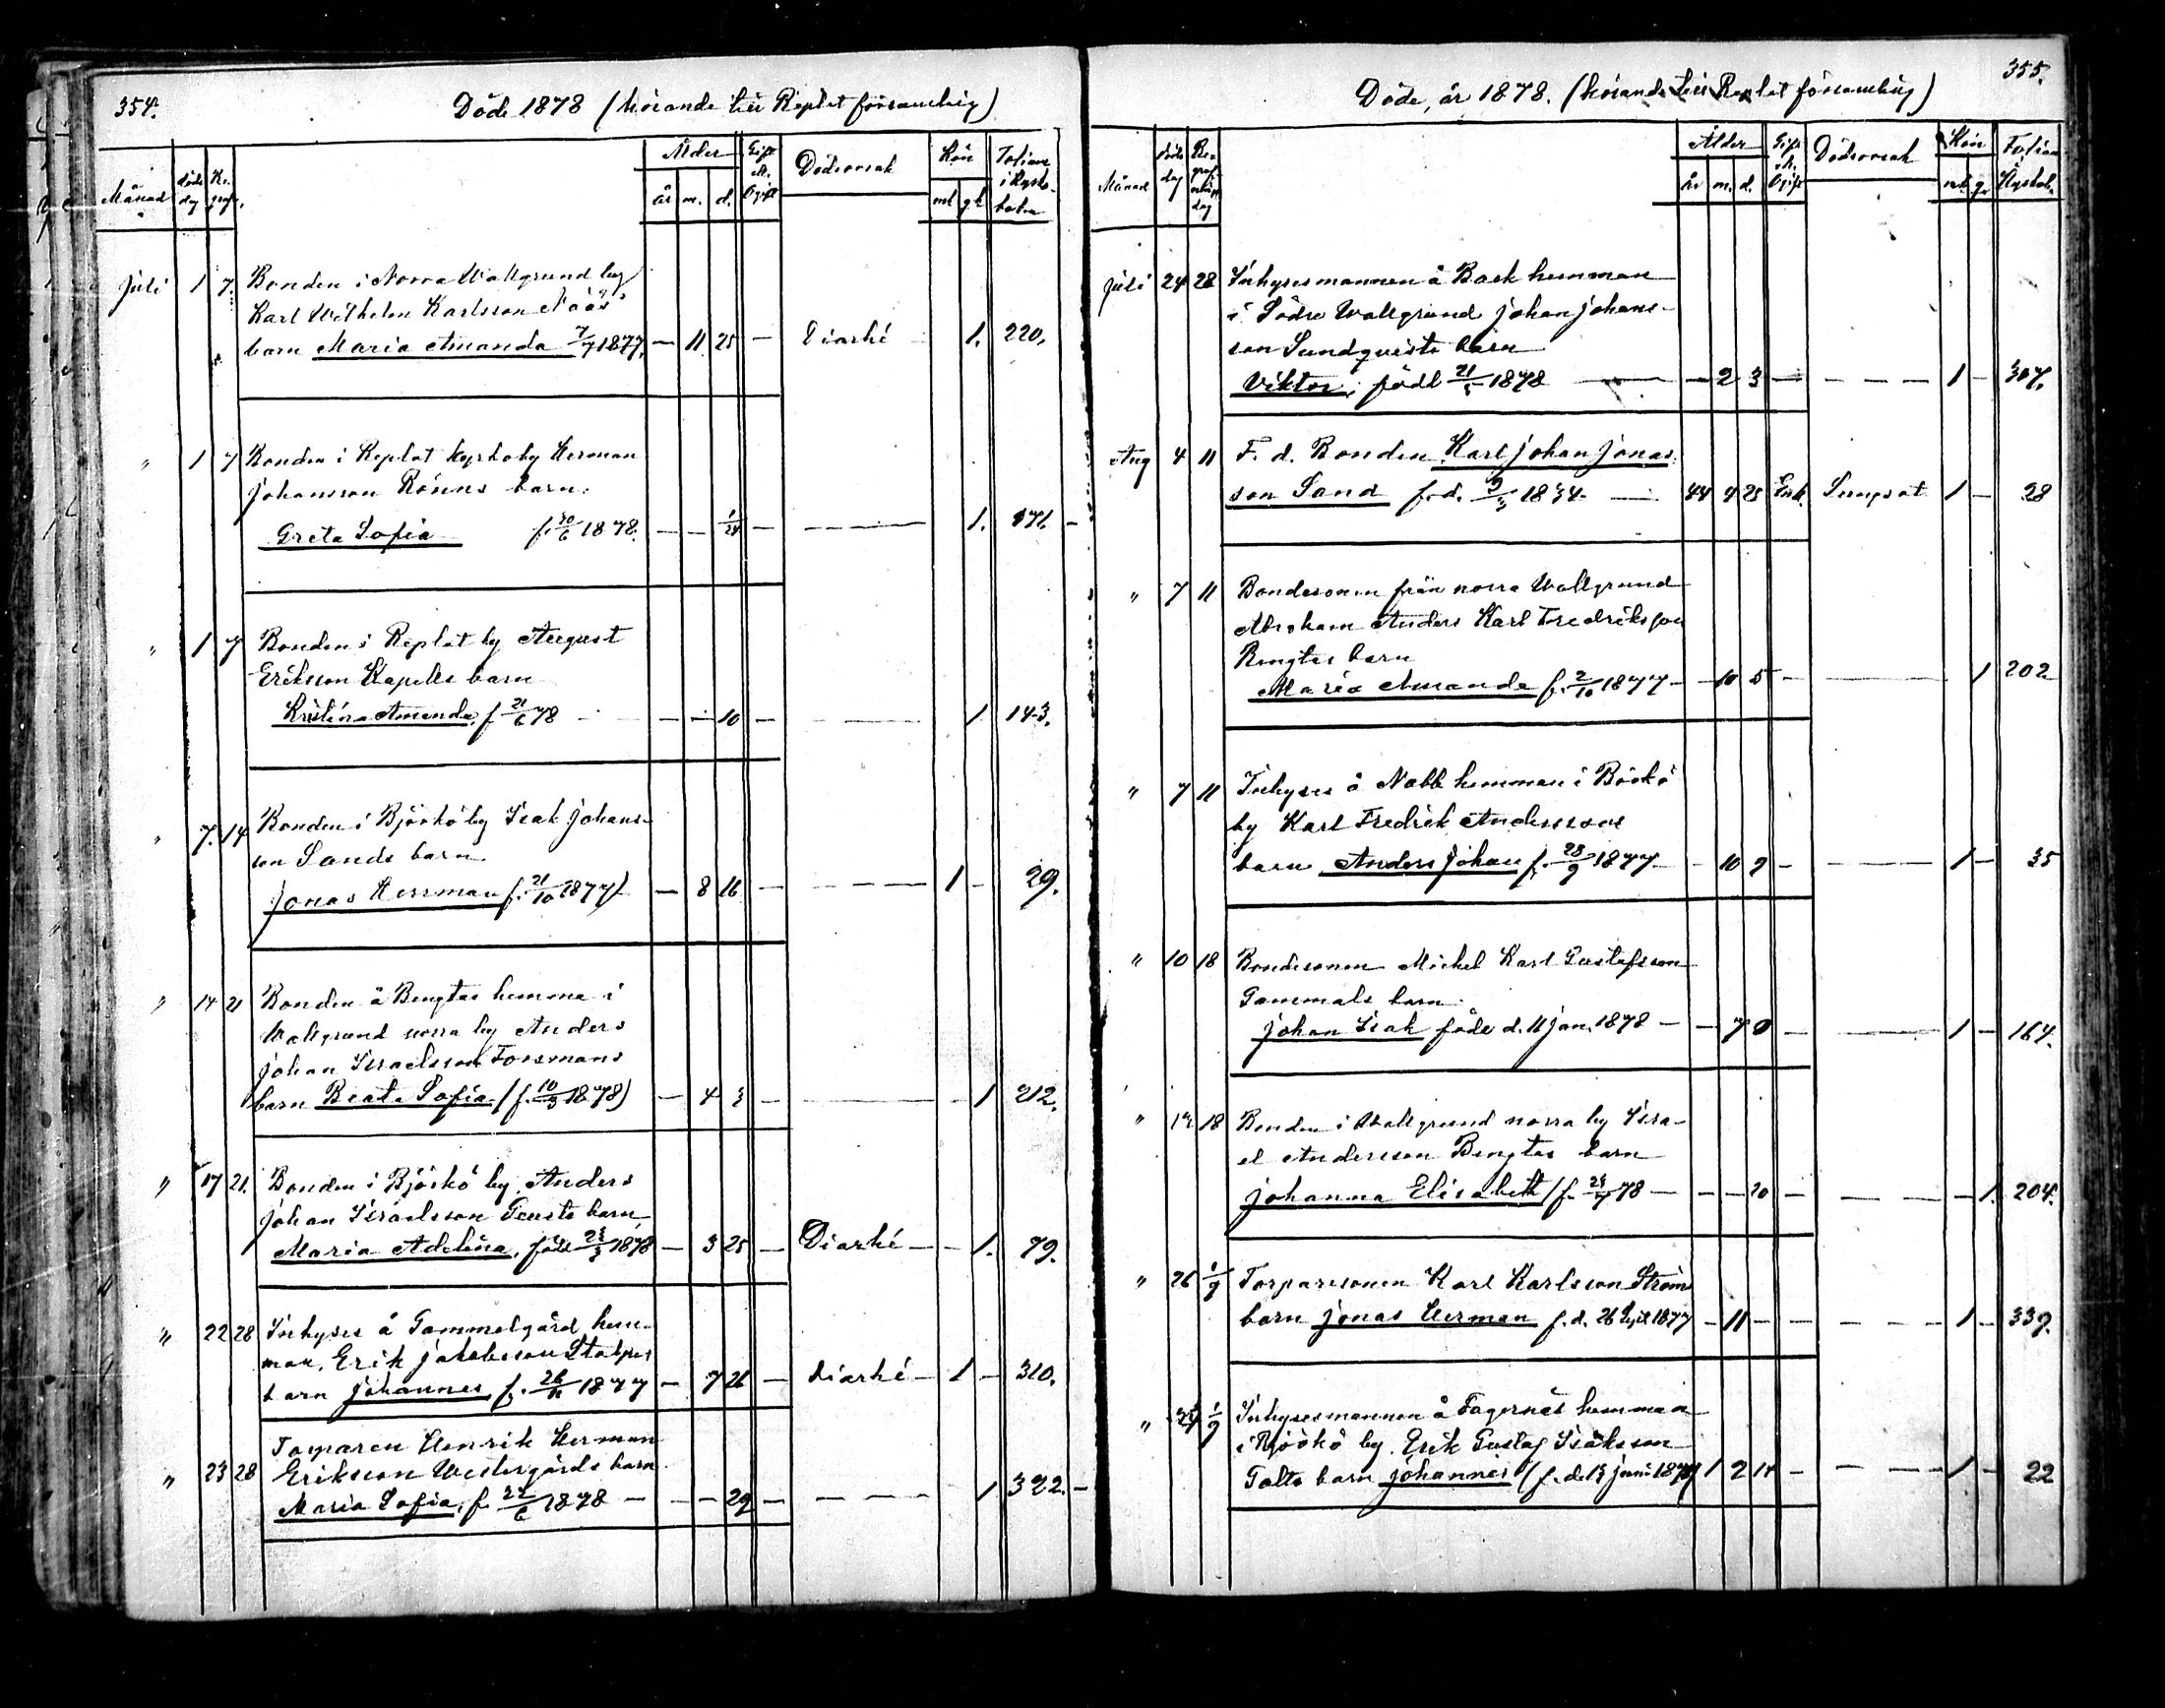 354.
Döde 1878 (hörande till Replot församling)
Månad
döds dag
Be- graf.
Ålder
år m. d.
Gift ell. Ogift
Dödsorsak
Kön
ml qk
Folium i Kyrko- boken
Juli 1 7. Bonden i Norra Wallgrund by
Karl Wilhelm Karlsson Nääs
barn Maria Amanda 7/7 1877. — 11 25 — Diarhé 1. 220.
" 1 7 Bonden i Replot kyrkoby Herman
Johansson Rönns barn.
Greta Sofia f. 30/6 1878. — — 1/24 — — 1. 171.
" 1 7 Bonden i Replot by August
Eriksson Kapells barn
Kristina Amanda f 21/6 78 — — 10 — — 1 143.
" 7. 14 Bonden i Björkö by Isak Johans-
son Sands barn.
Jonas Herrman f. 21/10 1877) — 8 16 — — 1 — 29.
" 14 21 Bonden å Bengtas hemma i
Wallgrund norra by Anders
Johan Israelsson Forsmans
barn Beata Sofia (f. 10/3 1878) — 4 — — 1 212.
" 17 21. Bonden i Björkö by Anders
Johan Israelsson Gusts barn
Maria Adelina, född 1878 — 3 25 — Diarhé — 1. 79.
" 22 28 Inhyses å Gammelgård hem-
man, Erik Jakobsson Stolpes
barn Johannes f. 26/11 1877 — 7 26 — diarhé — 1 — 310.
" 23 28 Torparen Henrik Herman
Eriksson Westergårds barn
Maria Sofia, f. 24/6 1878 — — — 29 — — 1 322.
355.
Döde, år 1878. (hörande till Replot församling)
Månad
döds dag
Be- graf- nings dag
Ålder
år m. d.
Gift ell. Ogift
Dödsorsak
Kön
ml. q.
Folium Kyrkob.
Juli 24 28 Inhysesmannen å Back hemman
i Södra Wallgrund Johan Johans-
son Sundqvists barn
Viktor, född 21/5 1878 — — 2 3 — — 1 — 307.
Aug 4 11 F. d. Bonden Karl Johan Jonas-
son Sand f. d. 9/3 1834. — 44 4 25 Enk. Lungsot 1 — 28
" 7 11 Bondesonen från norra Wallgrund
Abraham Anders Karl Fredriksson
Bengtas barn
Maria Amanda f. 2/10 1877 — 10 5 — — 1 202
" 7 11 Inhyses å Nabb hemman i Börkö
by Karl Fredrik Anderssons
barn Anders Johan f. 28/9 1877 — 10 9 — — 1 — 35
" 10 18 Bondesonen Michel Karl Gustafsson
Gammals barn.
Johan Isak född d. 11 jan. 1878 — — 7 0 — — 1 — 164.
" 14 18 Bonden i Wallgrund norra by Isra-
el Andersson Bengtas barn
Johanna Elisabeth (f. 24/7 78 — — — 20 — — 1. 204.
" 26 1/9 Torparesonen Karl Karlsson Ström
barn Jonas Herman f. d. 26 Sept 1877 — 11 — — — 1 — 339.
" 1/9 Inhysesmannen å Fagernäs hemman
i Björkö by. Erik Gustaf Isaksson
Tolts barn Johannes (f. d. 13 juni 1877 1 2 14 — — 1 — 22